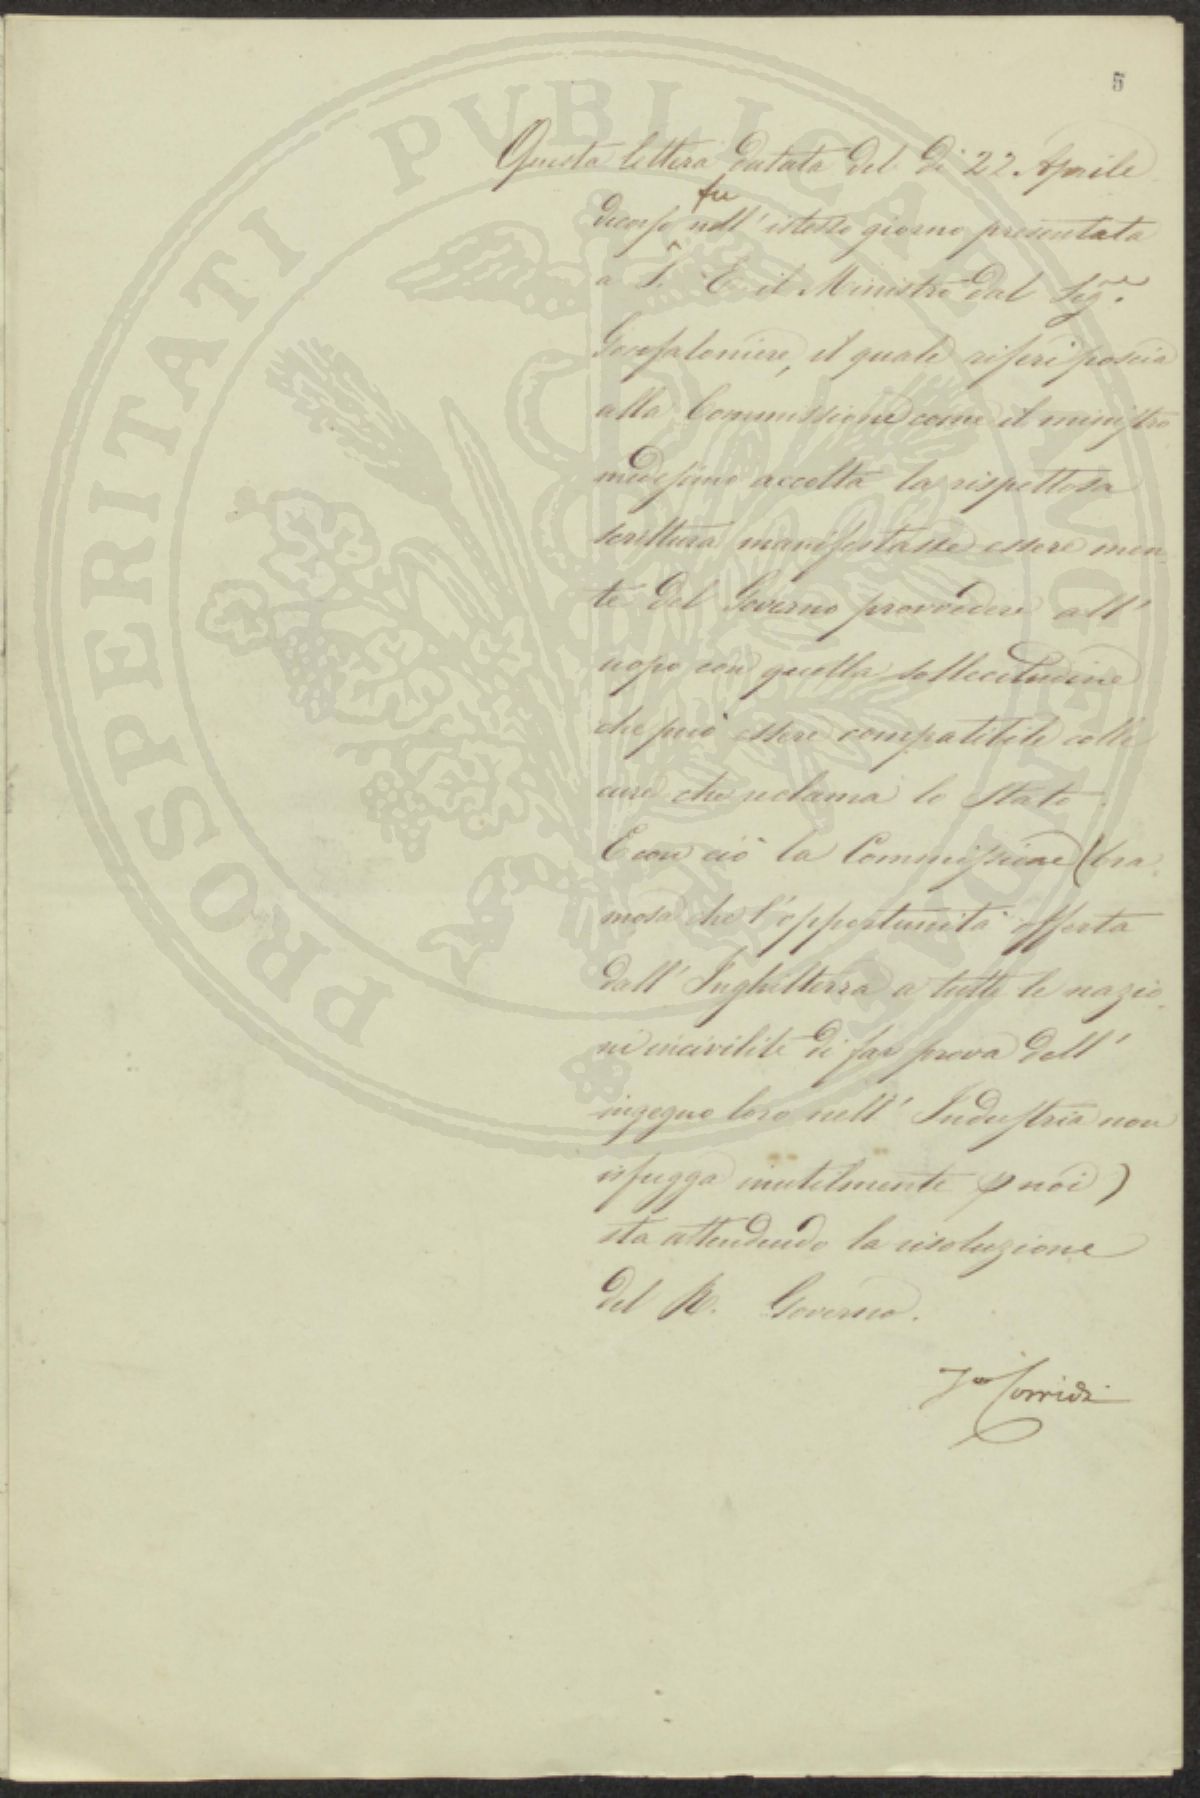 5
Questa lettera datata del dì 22. Aprile
decorso fu nell' istesso giorno presentata
a S. E. il Ministro dal Sig.e
Gonfaloniere, il quale riferì poscia
alla Commissione come il ministro
medesimo accolta la rispettosa
scrittura manifestasse essere men
te del Governo provvedere all'
uopo con quella sollecitudine
che può essere compatibile colle
cure che reclama lo Stato.
E con ciò la Commissione (bra
mosa che l'opportunità offerta
dall' Inghilterra a tutte le nazio
ni incivilite di far prova dell'
ingegno loro nell' Industria non
isfugga inutilmente p noi)
sta attendendo la risoluzione
del R. Governo.
Corridi
PROSPERITATI PUBLICAE